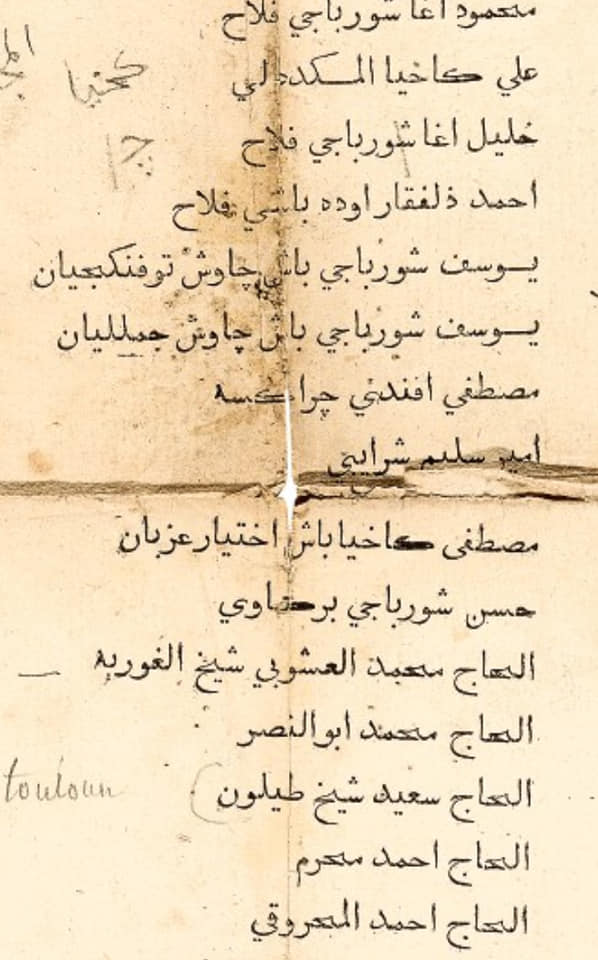 محمود اغا شورباجي فلاح
علي كاخيا المسكده لي
خليل اغا شورباجي فلاح
احمد ذلفقار اوده باشي فلاح
يوسف شورباجي باش چاوش توفنكجيان
يوسف شورباجي باش چاوش جمليان
مصطفي افندي چراكسه
امير سليم شرايبي
مصطفى كاخيا باش اختيار عزبان
حسن شورباجي بركاوي
الحاج محمد العشوبي شيخ الغوريه
الحاج محمد ابوالنصر
الحاج سعيد شيخ طيلون
touloun
الحاج احمد محرم
الحاج احمد المحروقي